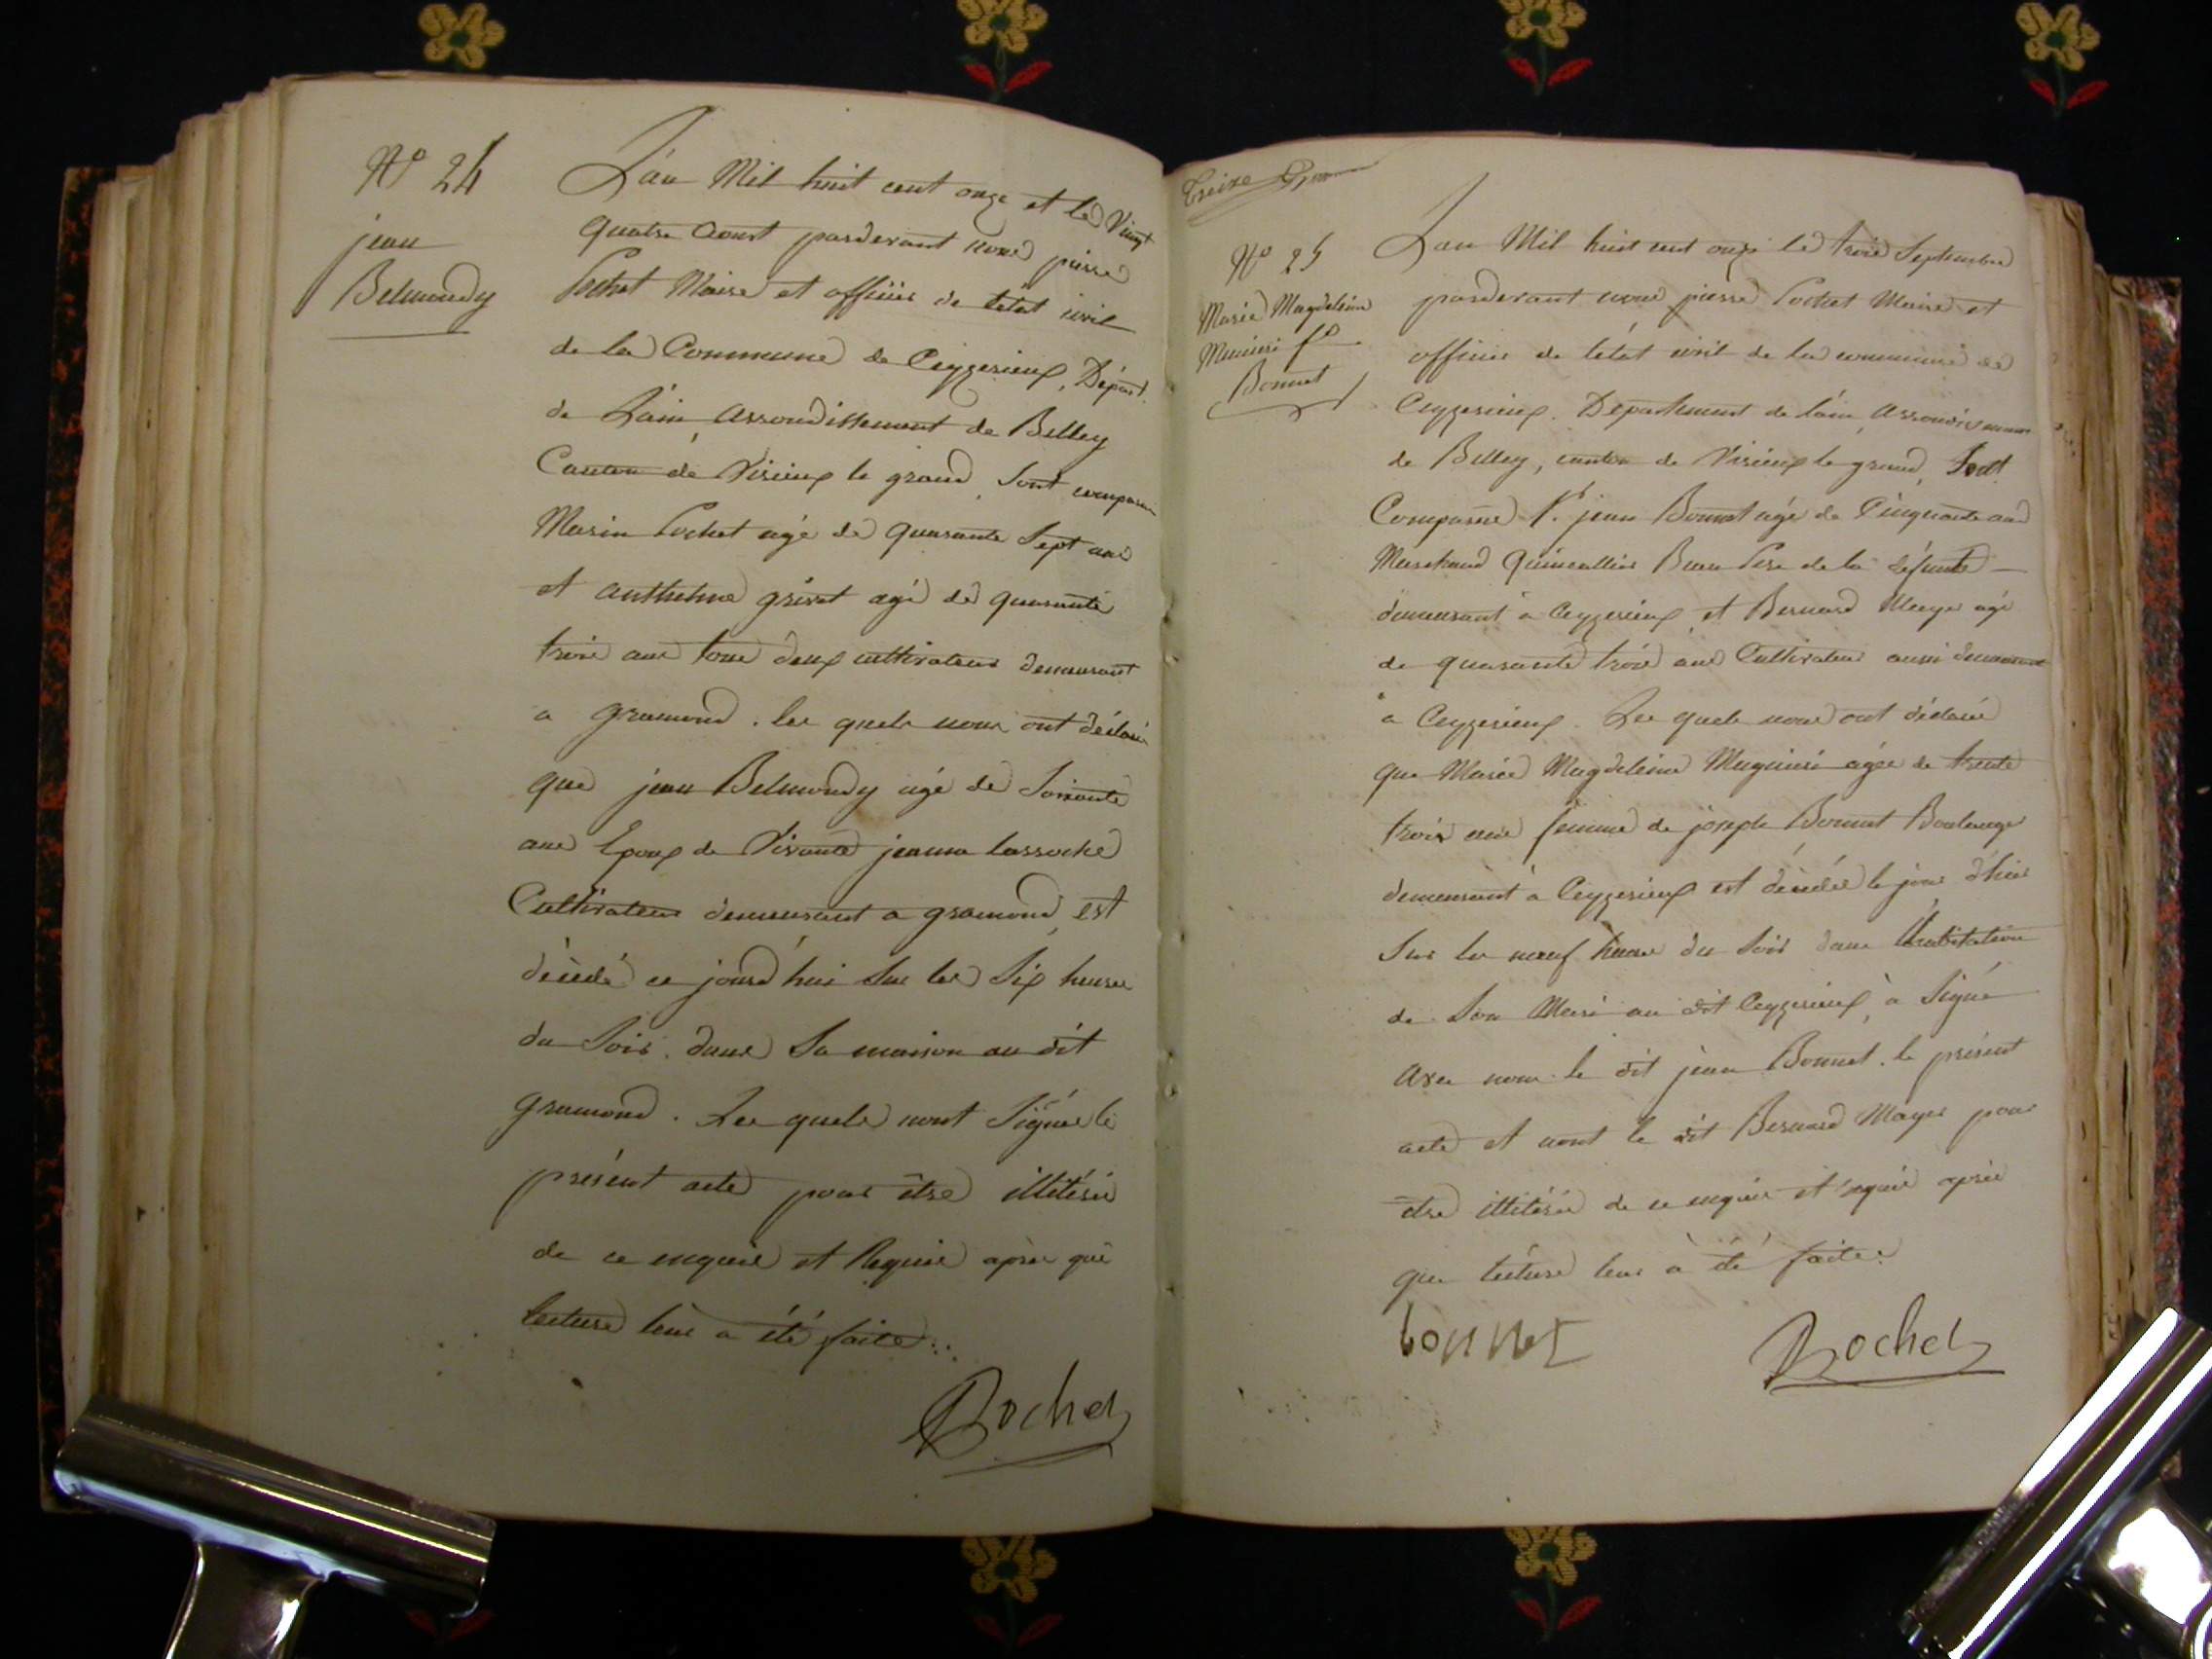 N° 24
jean
Belmondy
L'an Mil huit cent onze et le Vingt
quatre Aoust pardevant nous pierre
Rochet Maire et officier de l'état civil
de la Commune de Ceyzerieux, Départ.
de L'ain, arrondissement de Belley
Canton de Virieux le grand, Sont comparu
Marin Rochet agé de quarante Sept ans
et anthelme grivet agé de quarante
trois ans tous deux cultivateurs demeurant
a gramond. les quels nous ont déclaré
que jean Belmondy agé de Soixante
ans Epoux de Vivante jeanne
Cultivateur demeurant a gramond, est
décédé ce jourd'hui Sur les Six heures
du Soir. dans Sa maison au dit
gramond. Les quels n'ont Signés le
présent acte pour être illitérés
de ce enquis et Requis après que
lecture leur a été faite.
Rochet
Treize
N° 25
Marie Magdeleine
fe
Bonnet
L'an Mil huit cent onze le trois Septembre
pardevant nous pierre Rochet Maire et
officier de l'état civil de la commune de
Ceyzerieux. Departement de l'ain, Arrondissement
de Belley, canton de Virieux le grand, Sont
Comparus Sr. jean Bonnet agé de Cinquante ans
Marchand Quincallier Beau Pere de la défunte
demeurant à Ceyzerieux, et Bernard Meyer agé
de quarante trois ans Cultivateur aussi demeurant
à Ceyzerieux. Les quels nous ont déclaré
que Marie Magdeleine agée de trente
trois ans femme de joseph Bonnet Boulanger
demeurant à Ceyzerieux est décédée le jour d'hier
Sur les neuf heures du Soir dans l'habitation
de Son Mari au dit Ceyzerieux, à Signé
avec nous le dit jean Bonnet. le présent
acte et nont le dit Bernard Mayer pour
etre illitérés de ce enquis et requis après
que lecture leur à été faite.
bonnet
Rochet